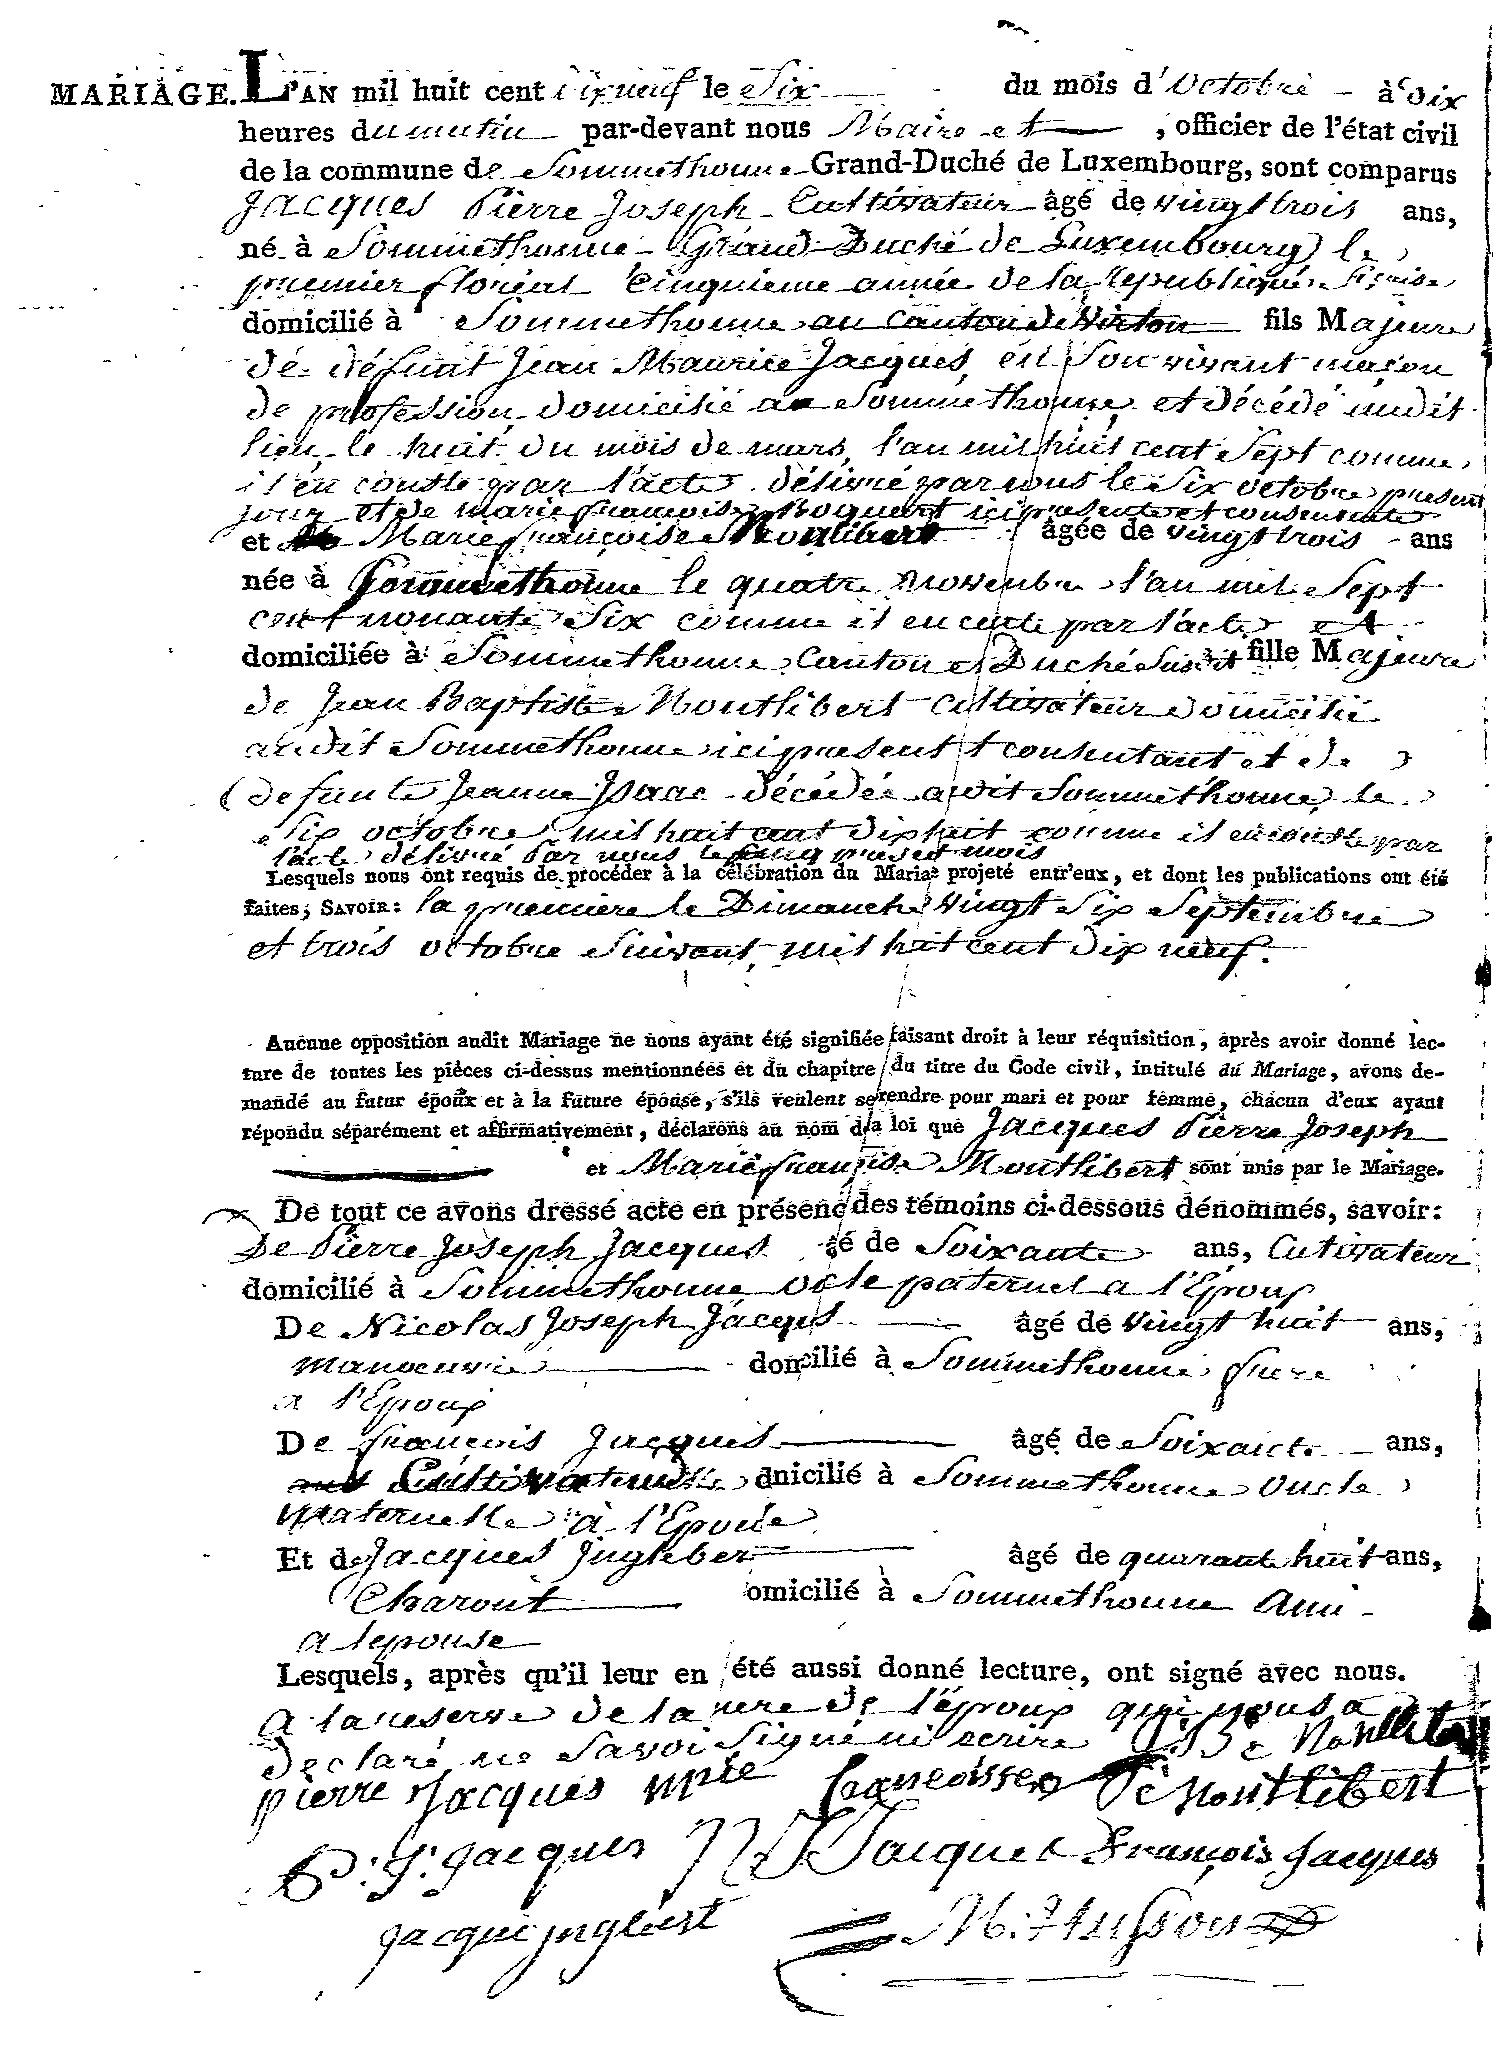 MARIAGE. L'AN mil huit cent dix neuf le Six du mois d'Octobre à dix
heures du matin par-devant nous Maire et , officier de l'état civil
de la commune de Sommethonne Grand-Duché de Luxembourg, sont comparus
Jacques Pierre Joseph Cultivateur âgé de vingt trois ans,
né à Sommethonne Grand Duché de Luxembourg le
premier floréal Cinquieme année de la Republique
domicilié à Sommethonne au Canton de Virton fils Majeure
de défunt Jean Maurice Jacques, en Son vivant maçon
de profession, domicilié a Sommethonne et décédé audit
lieu le huit du mois de mars, l'an mil huit cent Sept comme
il en conste par l'acte délivré par nous le Six octobre present
jour et de marie francoise ici presente et consentante
et Marie francoise Montlibert âgée de vingt trois ans
née à Sommethonne le quatre novembre l'an mil Sept
cent nonante Six comme il en conste par l'acte
domiciliée à Sommethonne Canton Duché Susdit fille Majeure
de Jean Baptiste Montlibert Cultivateur Domicilié
audit Sommethonne ici present et consentant et de
defunte Jeanne Isaac décédée audit Sommethonne le
Six octobre mil huit cent dix huit comme il en conste par
l'acte délivré par nous le present mois
Lesquels nous ont requis de procéder à la célébration du Maria projeté entr'eux, et dont les publications ont été
faites; SAVOIR: la premiere le Dimanche vingt Six Septembre
et trois octobre Suivant, mil huit cent dix neuf.
Aucune opposition audit Mariage ne nous ayant été signifiée faisant droit à leur réquisition, après avoir donné lec-
ture de toutes les pièces ci-dessus mentionnées et du chapitre du titre du Code civil, intitulé du Mariage, avons de-
mandé au futur époux et à la future épouse, s'ils veulent se rendre pour mari et pour femme, chacun d'eux ayant
répondu séparément et affirmativement, déclarons au nom d la loi que Jacques Pierre Joseph
et Marie françoise Montlibert sont unis par le Mariage.
De tout ce avons dressé acte en présenc des témoins ci-dessous dénommés, savoir:
De Pierre Joseph Jacques gé de Soixante ans, Cutivateur
domicilié à Sommethonne ocle paternel a l'Epoux
De Nicolas Joseph Jacques âgé de vingt huit ans,
manoeuvre domicilié à Sommethonne frere
a l'Epoux
De François Jacques âgé de Soixante ans,
Cultivateur domicilié à Sommethonne Oncle
Maternelle à l'Epouse
Et de Jacques Inglebert âgé de quarant huit ans,
Charont omicilié à Sommethonne Ami
a lepouse
Lesquels, après qu'il leur en été aussi donné lecture, ont signé avec nous.
a la reserve de la mere de l'époux qui nous a
declaré ne Savoir Signé ni ecrire
pierre Jacques mrie francoisse Montlibert
P. J. Jacques N J Jacques François Jacques
jacque inglbert N. Husson